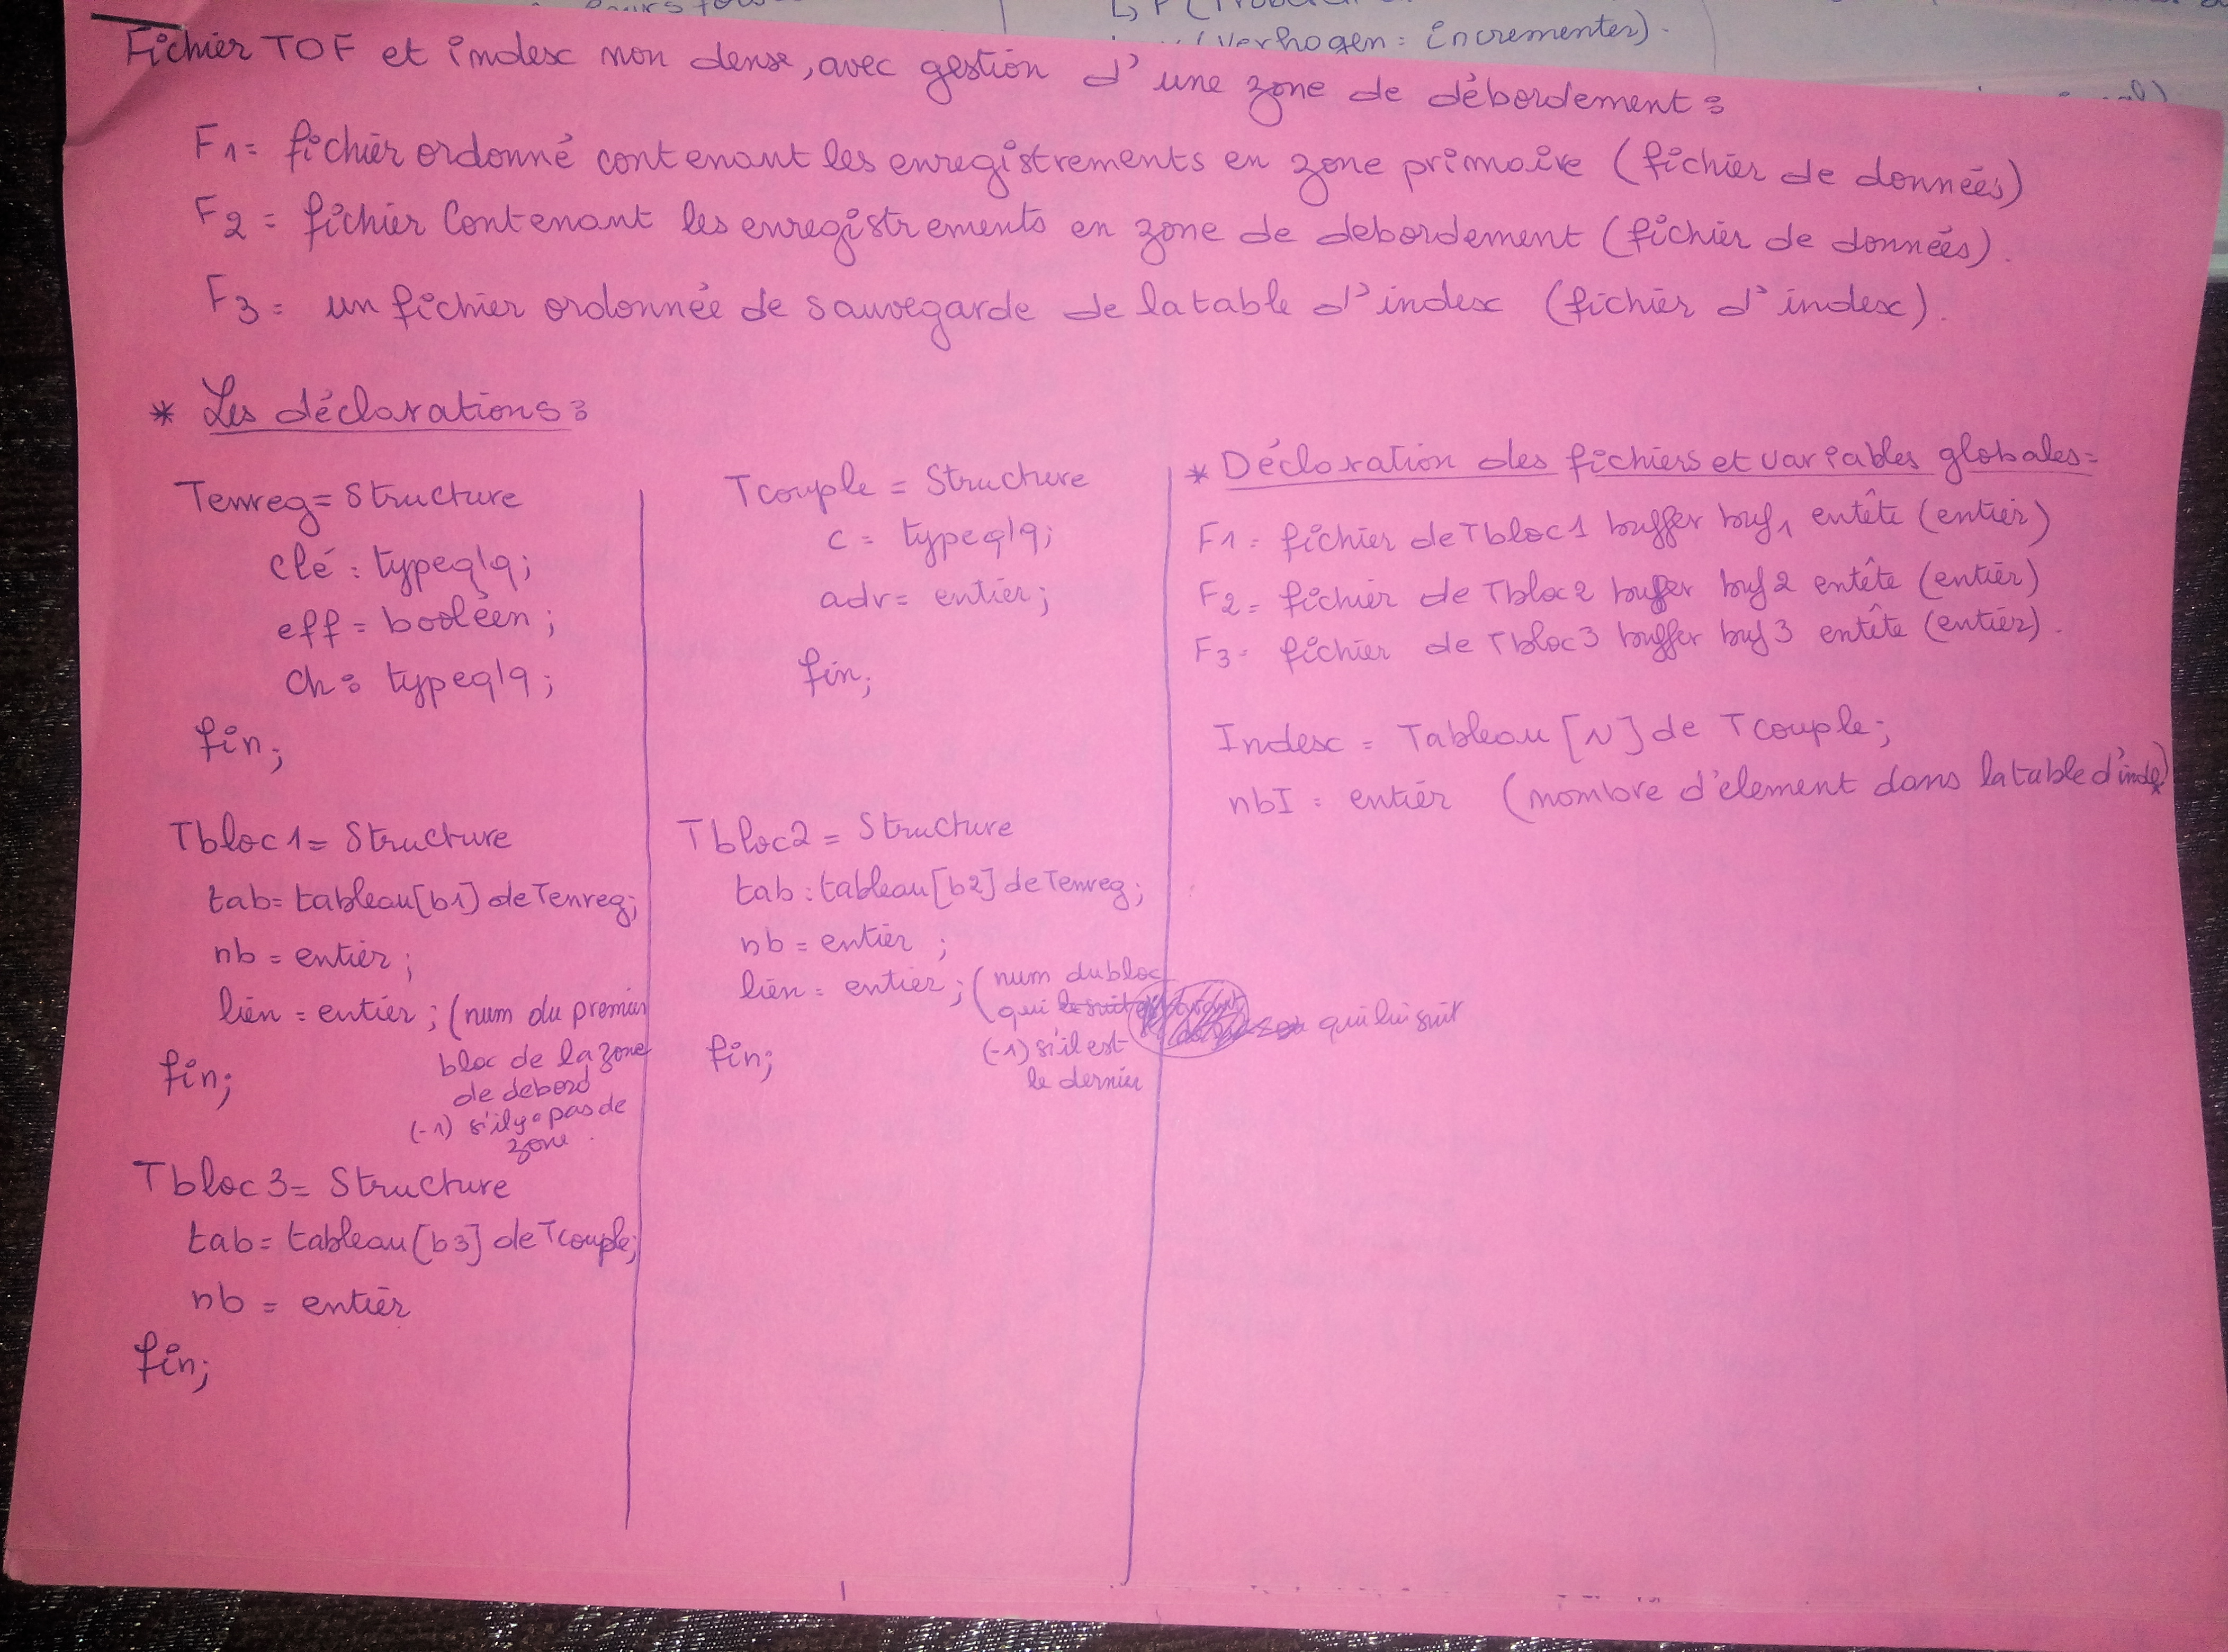 (Verhogen : incrementer).
Fichier TOF et index non dense, avec gestion d'une zone de débordement :
F1 = fichier ordonné contenant les enregistrements en zone primaire (fichier de données)
F2 = fichier Contenant les enregistrements en zone de debordement (fichier de données).
F3 = un fichier ordonnée de sauvegarde de la table d'index (fichier d'index).
* Les déclarations :
Tenreg = Structure
clé : typeqlq;
eff = booléen ;
Ch : typeqlq ;
fin;
Tbloc1 = Structure
tab = tableau[b1] de Tenreg;
nb = entier ;
lien = entier ; (num du premier
bloc de la zone
de debord
(-1) s'il y a pas de
zone.
fin;
Tbloc3 = Structure
tab = tableau[b3] de Tcouple;
nb = entier
fin;
Tcouple = Structure
c = typeqlq;
adr = entier ;
fin;
Tbloc2 = Structure
tab : tableau[b2] de Tenreg;
nb = entier ;
lien = entier ; (num du bloc
qui qui lui suit
(-1) s'il est
le dernier
fin;
* Déclaration des fichiers et variables globales =
F1 = fichier de Tbloc1 buffer buf1 entête (entier)
F2 = fichier de Tbloc2 buffer buf2 entête (entier)
F3 = fichier de Tbloc3 buffer buf3 entête (entier).
Index = Tableau [N] de Tcouple;
nbI = entier (nombre d'element dans la table d'index)